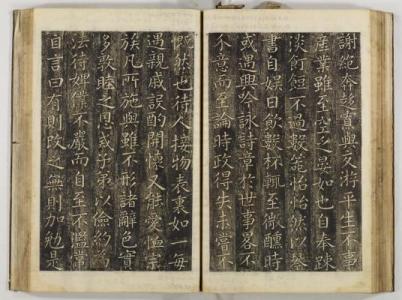 謝絶奔趍寡與交游平生不事
産業雖至空乏晏如也自奉踈
淡飣餖不過數簋怡怡然以琴
書自娱日飲數杯輒至微醺時
或遇興吟詠詩章於世事畧不
介意而至論時政得失未嘗不
慨然也待人接物表裏如一每
遇親戚設酌開懷又能愛恤宗
族凡所施與雖不形諸辭色實
多敦睦之恩戒子弟以儉約為
法待婢僕不嚴而自至不濫常
自言曰有則改之無則加勉是